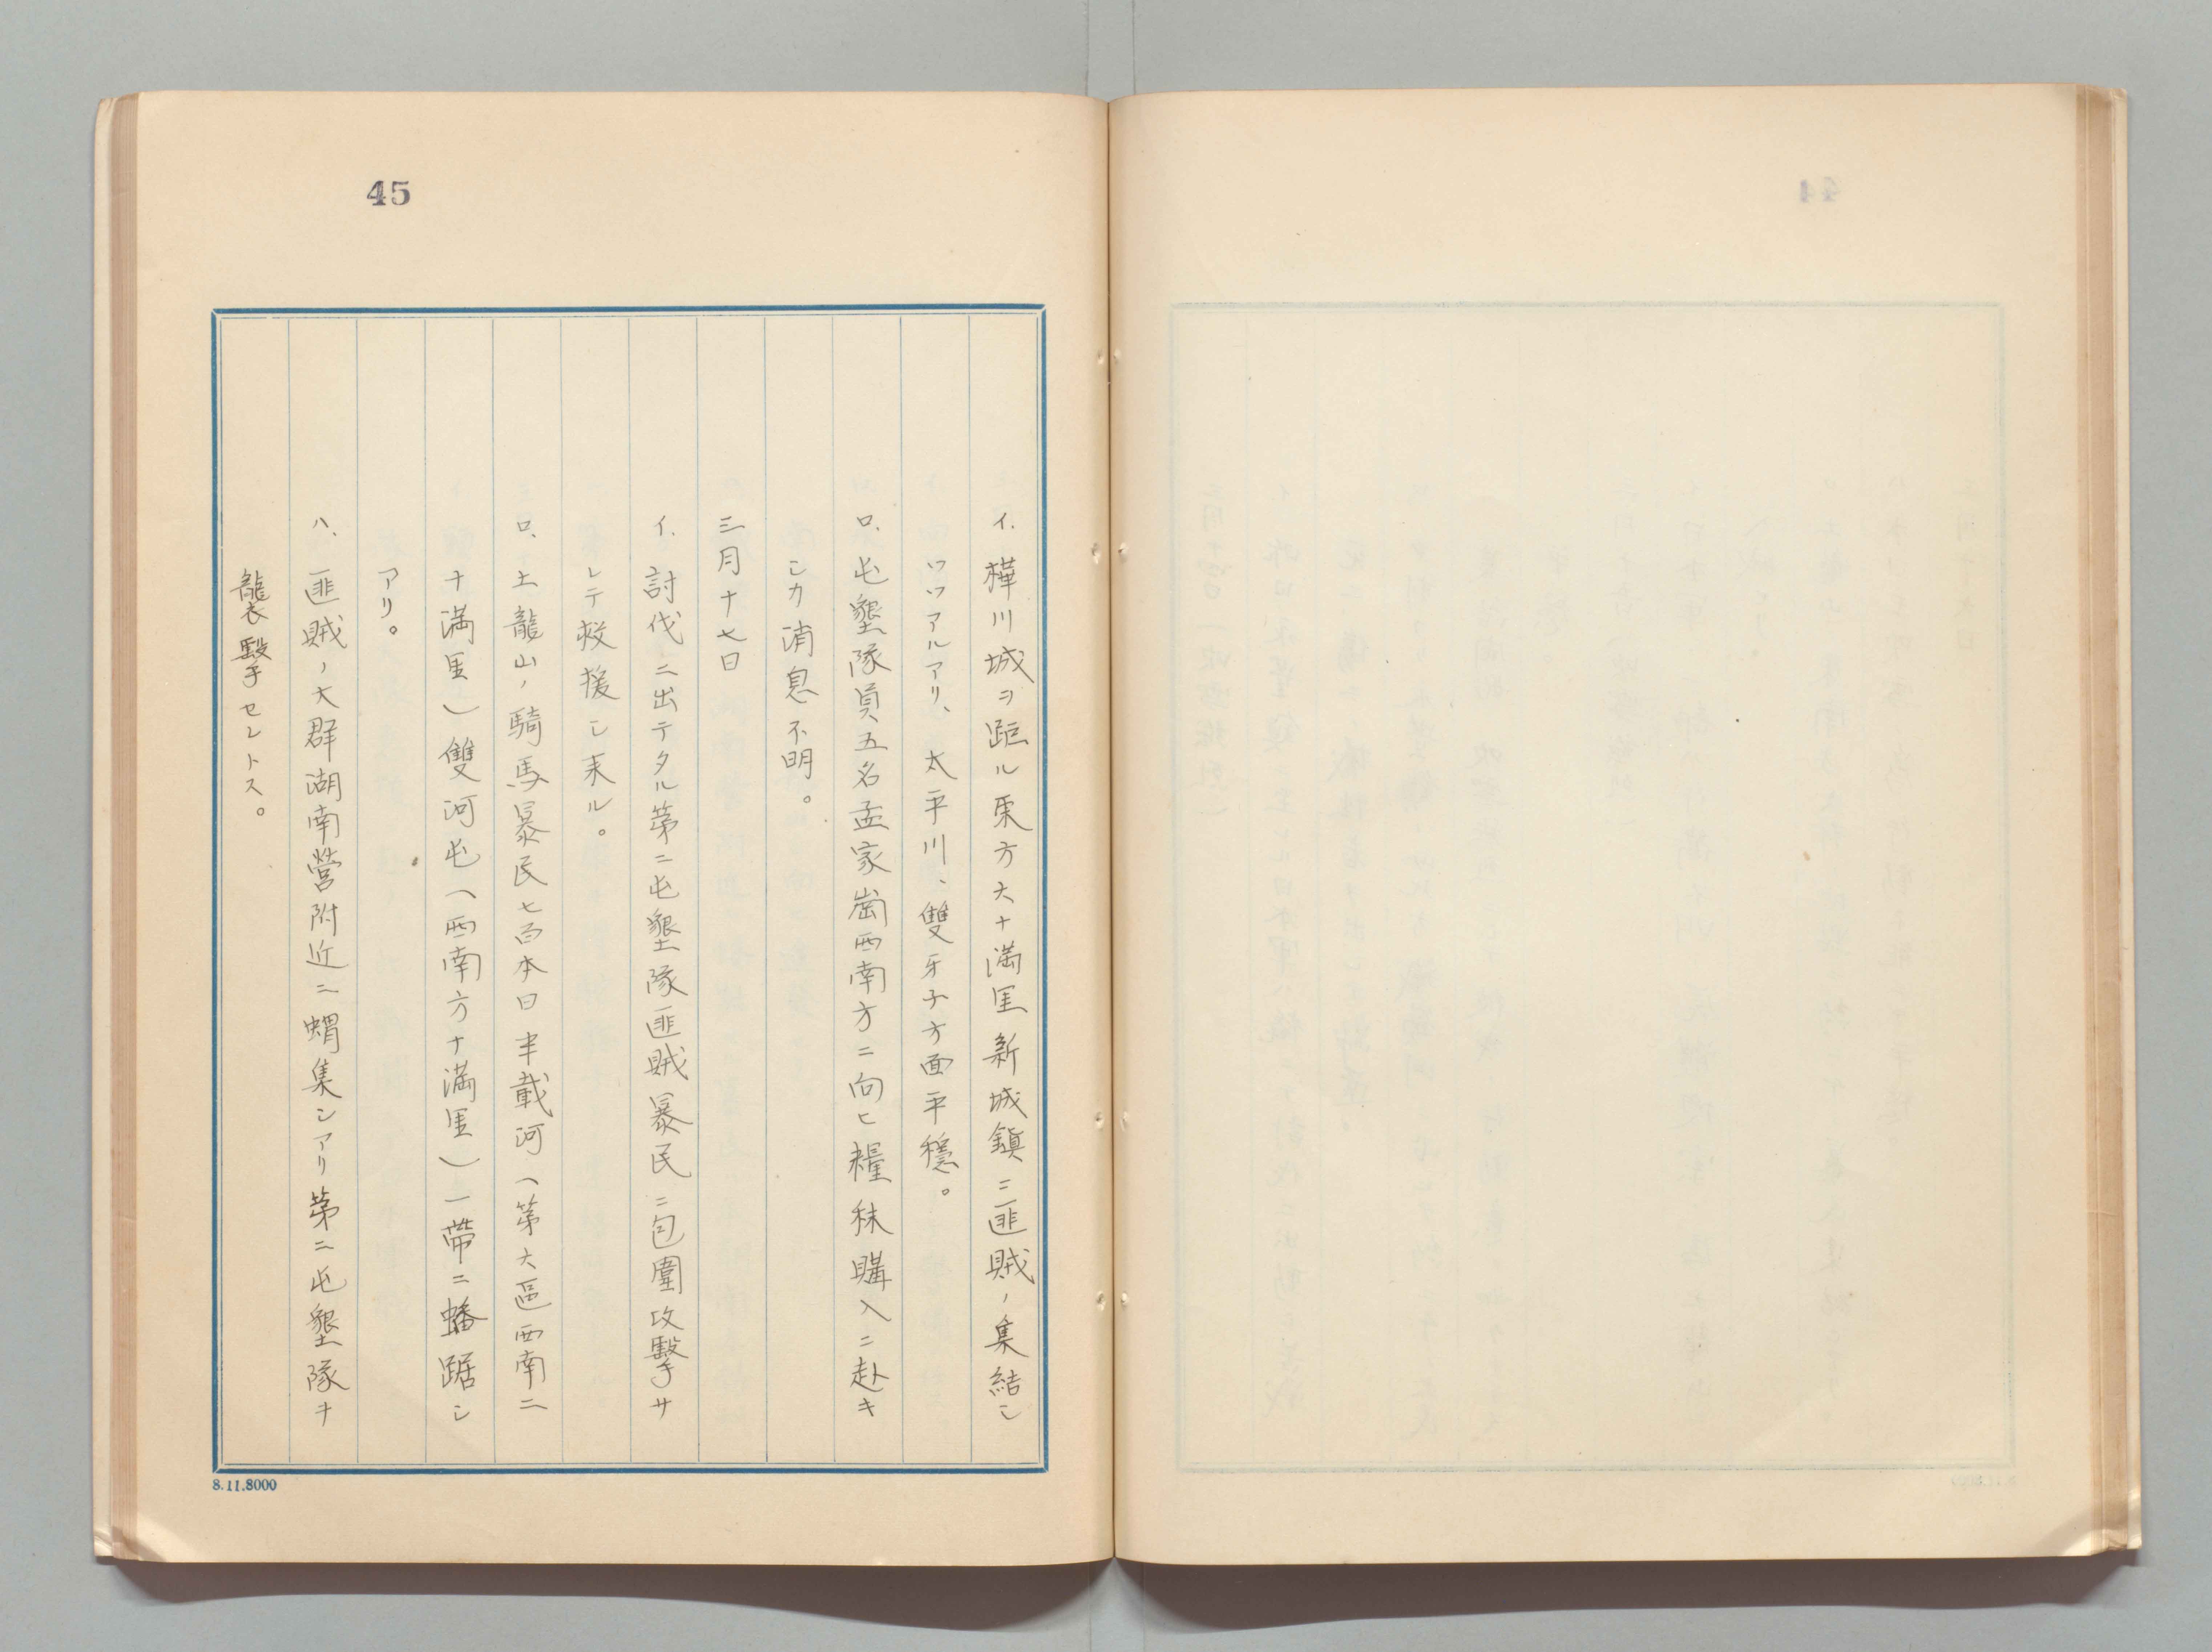 45
イ.樺川城ヲ距ル東方六十満里新城鎮ニ匪賊ノ集結シ
ツツアルアリ、太平川、雙牙子方面平穏。
ロ.屯墾隊員五名孟家崗西南方ニ向ヒ糧秣購入ニ赴キ
シカ消息不明。
三月十七日
イ.討伐ニ出テタル第二屯墾隊匪賊暴民ニ包圍攻擊サ
レテ救援シ来ル。
ロ、土龍山ノ騎馬暴民七百本日半載河(第六區西南二
十満里)雙河屯(西南方十満里)一帶ニ蟠踞シ
アリ。
ハ、匪賊ノ大群湖南營附近ニ蝟集シアリ第二屯墾隊ヲ
襲擊セントス。
8.11.8000